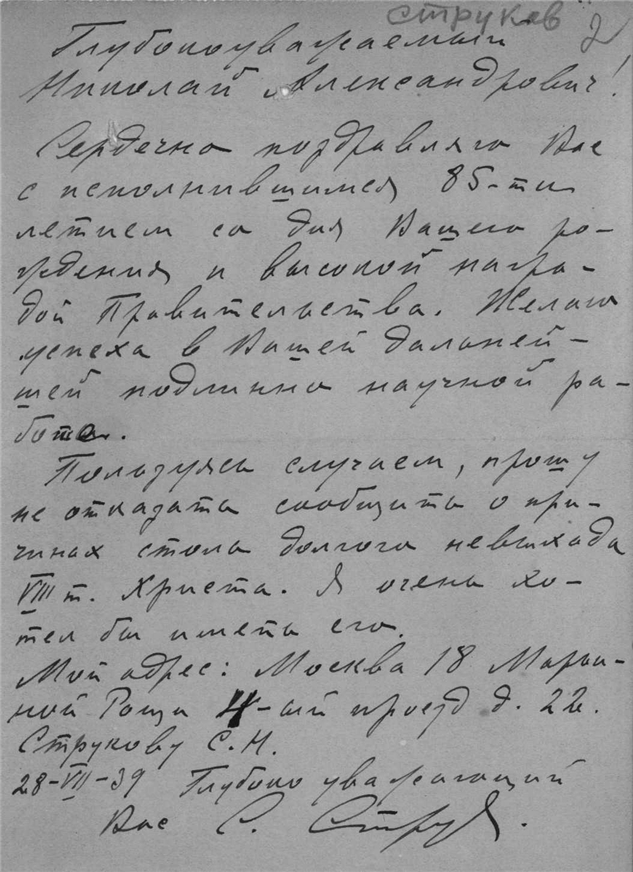 Струков 2
Глубокоуважаемый
Николай Александрович!
Сердечно поздравляю Вас
с исполнившимся 85-ти
летием со дня Вашего ро-
ждения и высокой награ-
дой Правительства. Желаю
успеха в Вашей дальней-
шей подлинно научной ра-
боте.
Пользуясь случаем, прошу
не отказать сообщить о при-
чинах столь долгого невыхода
VIII т. Христа. Я очень хо-
тел бы иметь его.
Мой адрес: Москва 18 Марьи-
ной Рощи 4-ый проезд д. 22.
Струкову С.Н.
28-VII-39 Глубоко уважающий
Вас С. Струков.